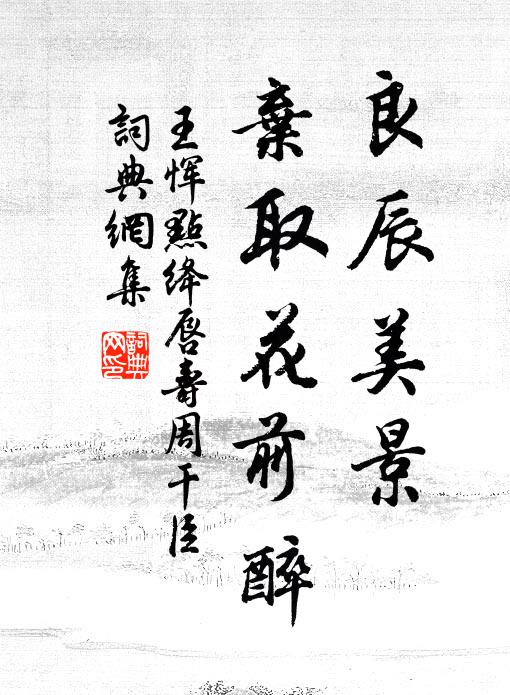 良辰美景
棄取花前醉
王惲點绛唇壽周干臣
詞典網集
詞典網印